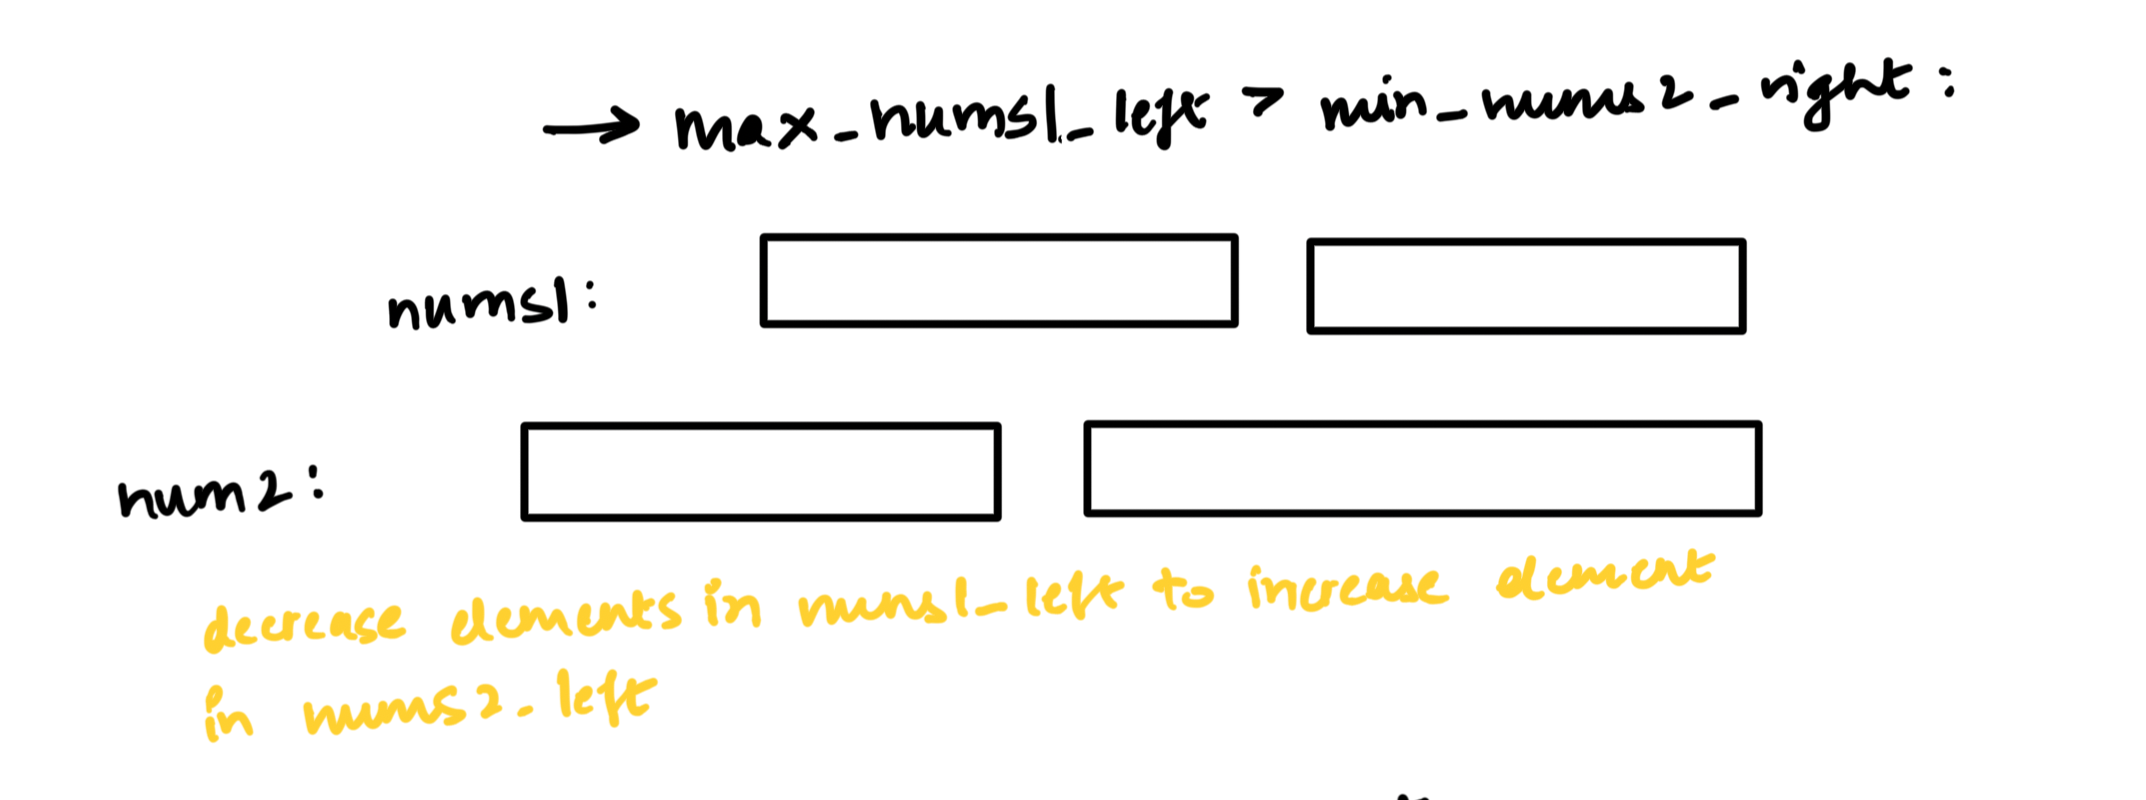 → max_nums1_left > min_nums2_right:
nums1:
num2:
decrease elements in nums1_left to increase element
in nums2_left